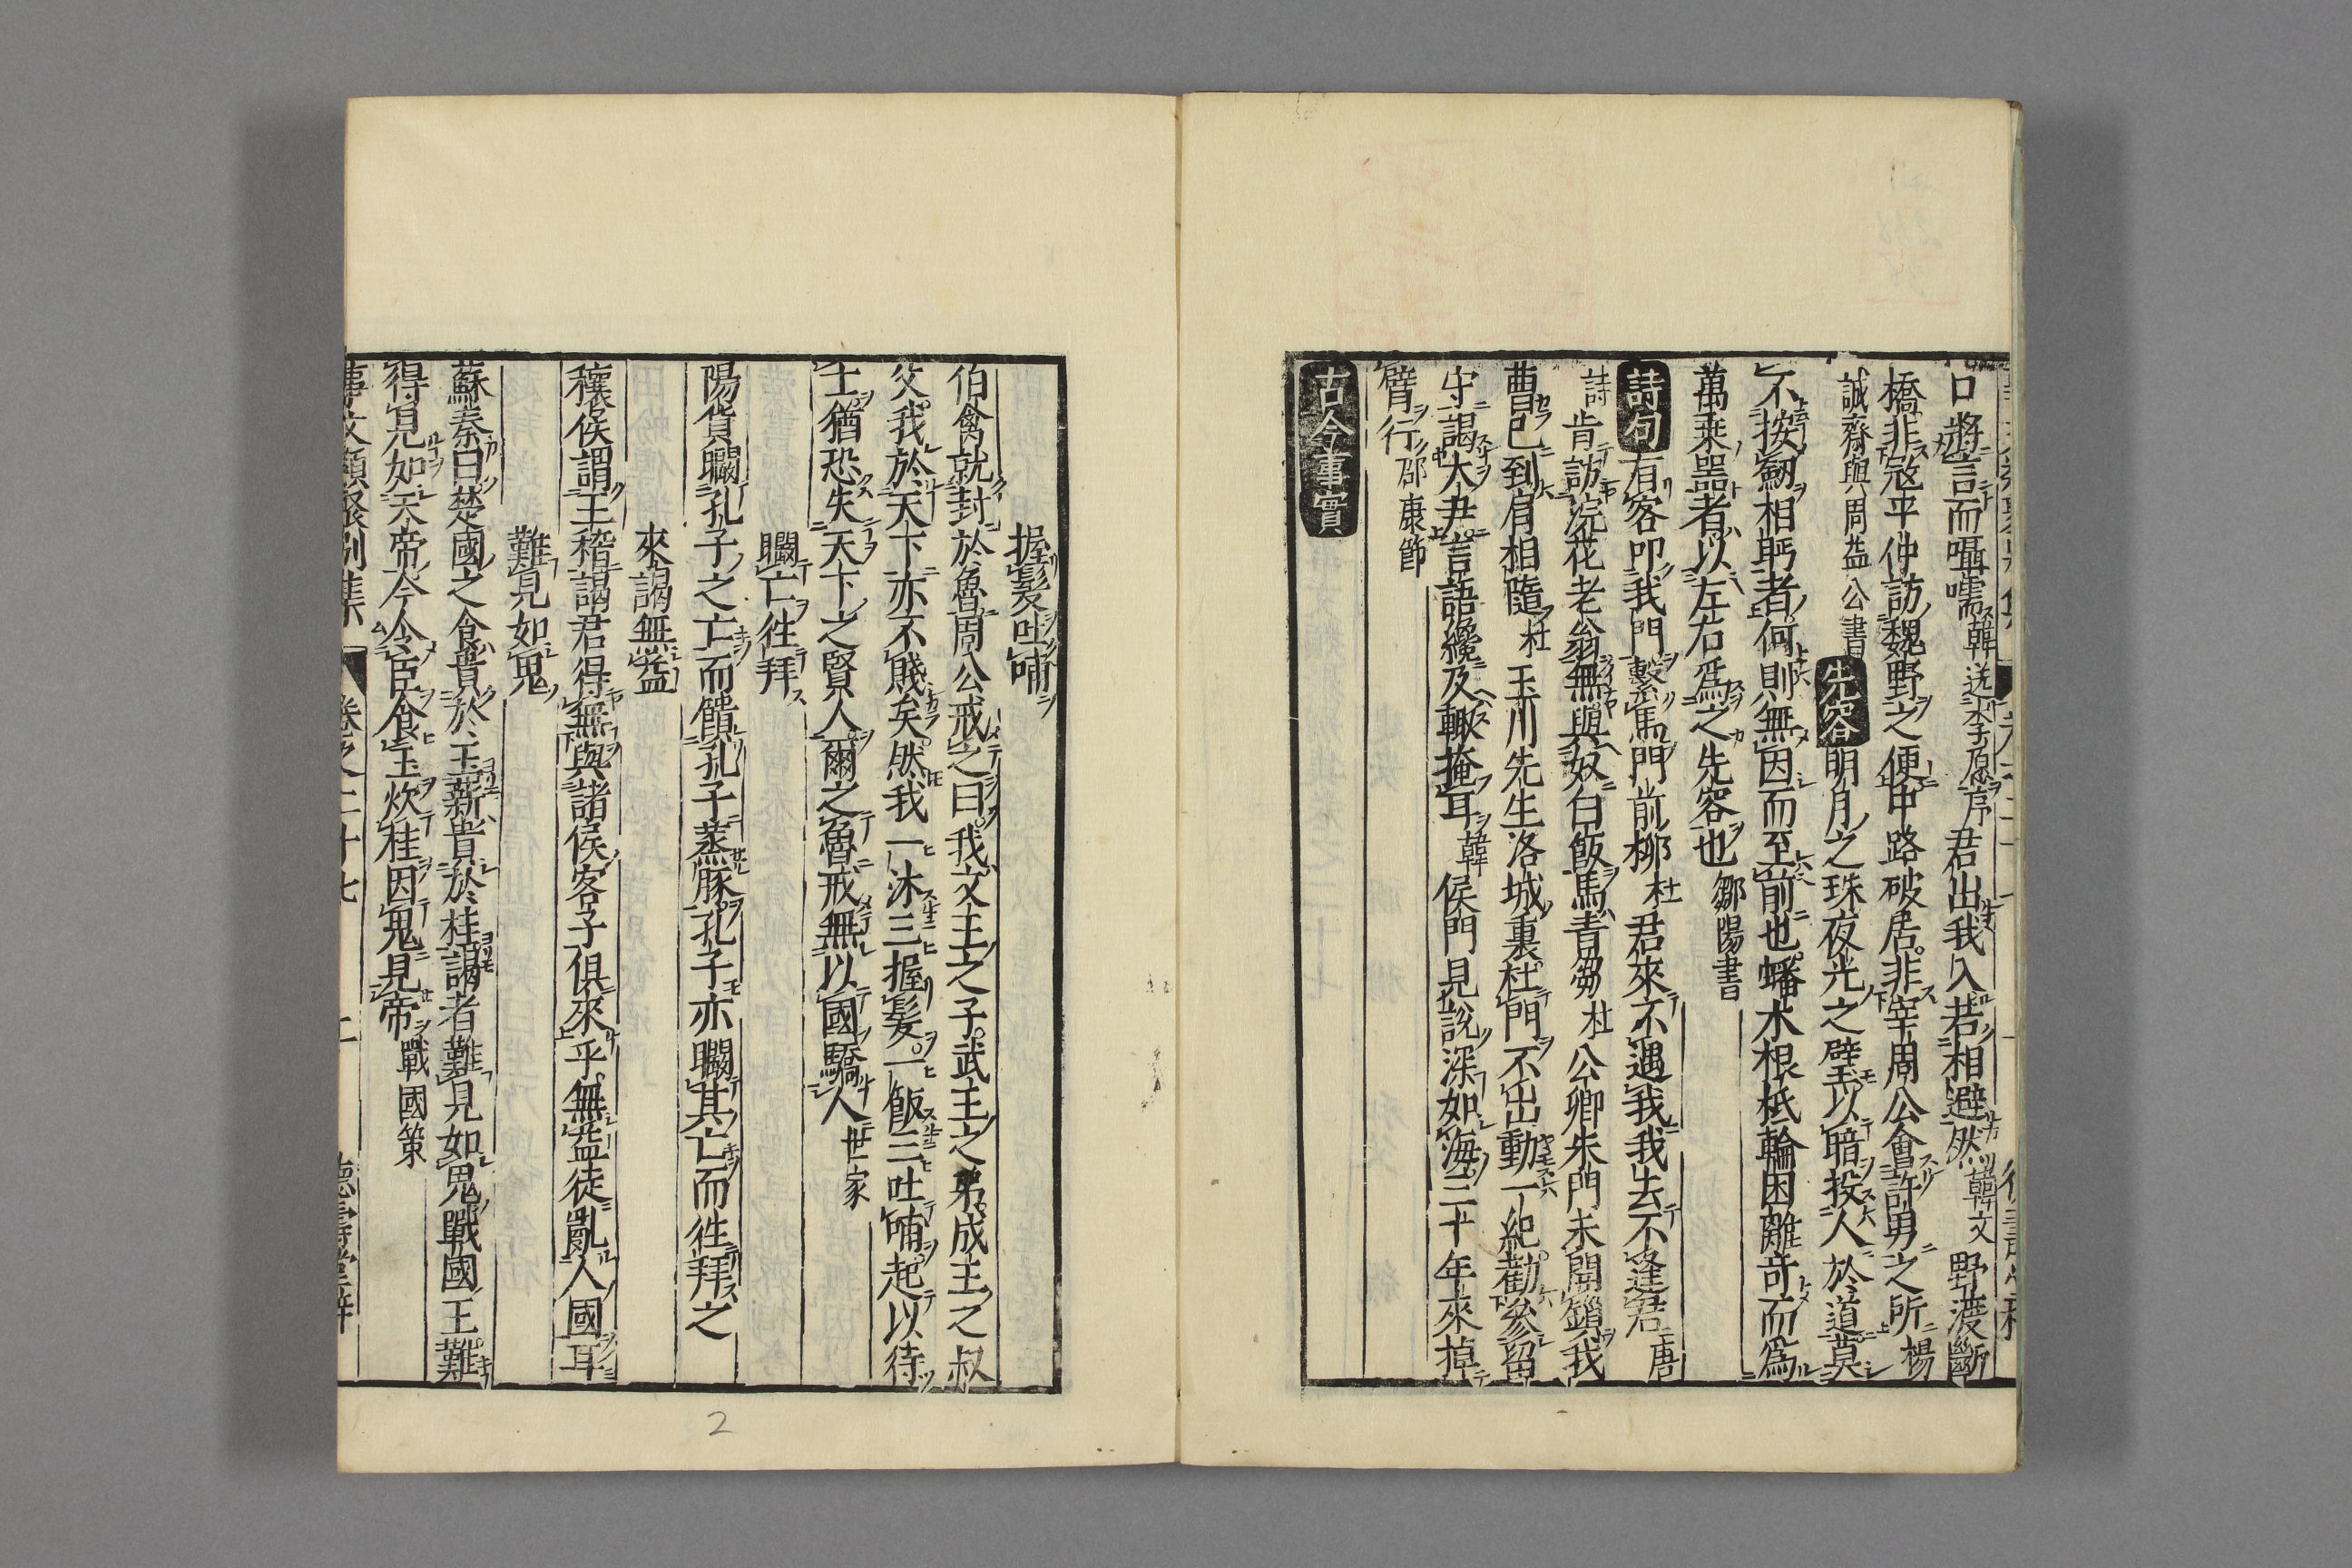 口將言而囁嚅韓送李愿序君出我入若相避然韓文野渡斷
橋非寇平仲訪魏野之便中路破居非宰周公會許男之所楊
誠齋與周益公書先容明月之珠夜光之璧以暗投人於道莫
不按劒相眄者何則無因而至前也蟠木根柢輪囷離奇而爲
萬乘噐者以左右爲之先容也鄒陽書
詩句有客叩我門繫馬門前柳杜君來不遇我我去不逢君唐
詩肯訪浣花老翁無與奴白飯馬青芻杜公卿朱門未開鎖我
曹已到肩相隨杜玉川先生洛城裏杜門不出動一紀勸參留
守謁大尹言語纔及輙掩耳韓侯門見說深如海三十年來掉
臂行邵康節
古今事實
握髮吐哺
伯禽就封於魯周公戒之曰我文王之子武王之弟成王之叔
父我於天下亦不賤矣然我一沐三握髮一飯三吐哺起以待
士猶恐失天下之賢人爾之魯戒無以國驕人世家
矙亡徃拜
陽貨矙孔子之亡而饋孔子蒸豚孔子亦矙其亡而徃拜之
來謁無益
穰侯謂王稽謁君得無與諸侯客子俱來乎無益徒亂人國耳
難見如鬼
蘇秦曰楚國之食貴於玉薪貴於桂謁者難見如鬼戰國王難
得見如天帝今令臣食玉炊桂因鬼見帝戰國策
事文類聚別集 卷之二十七 二 德壽堂梓
2